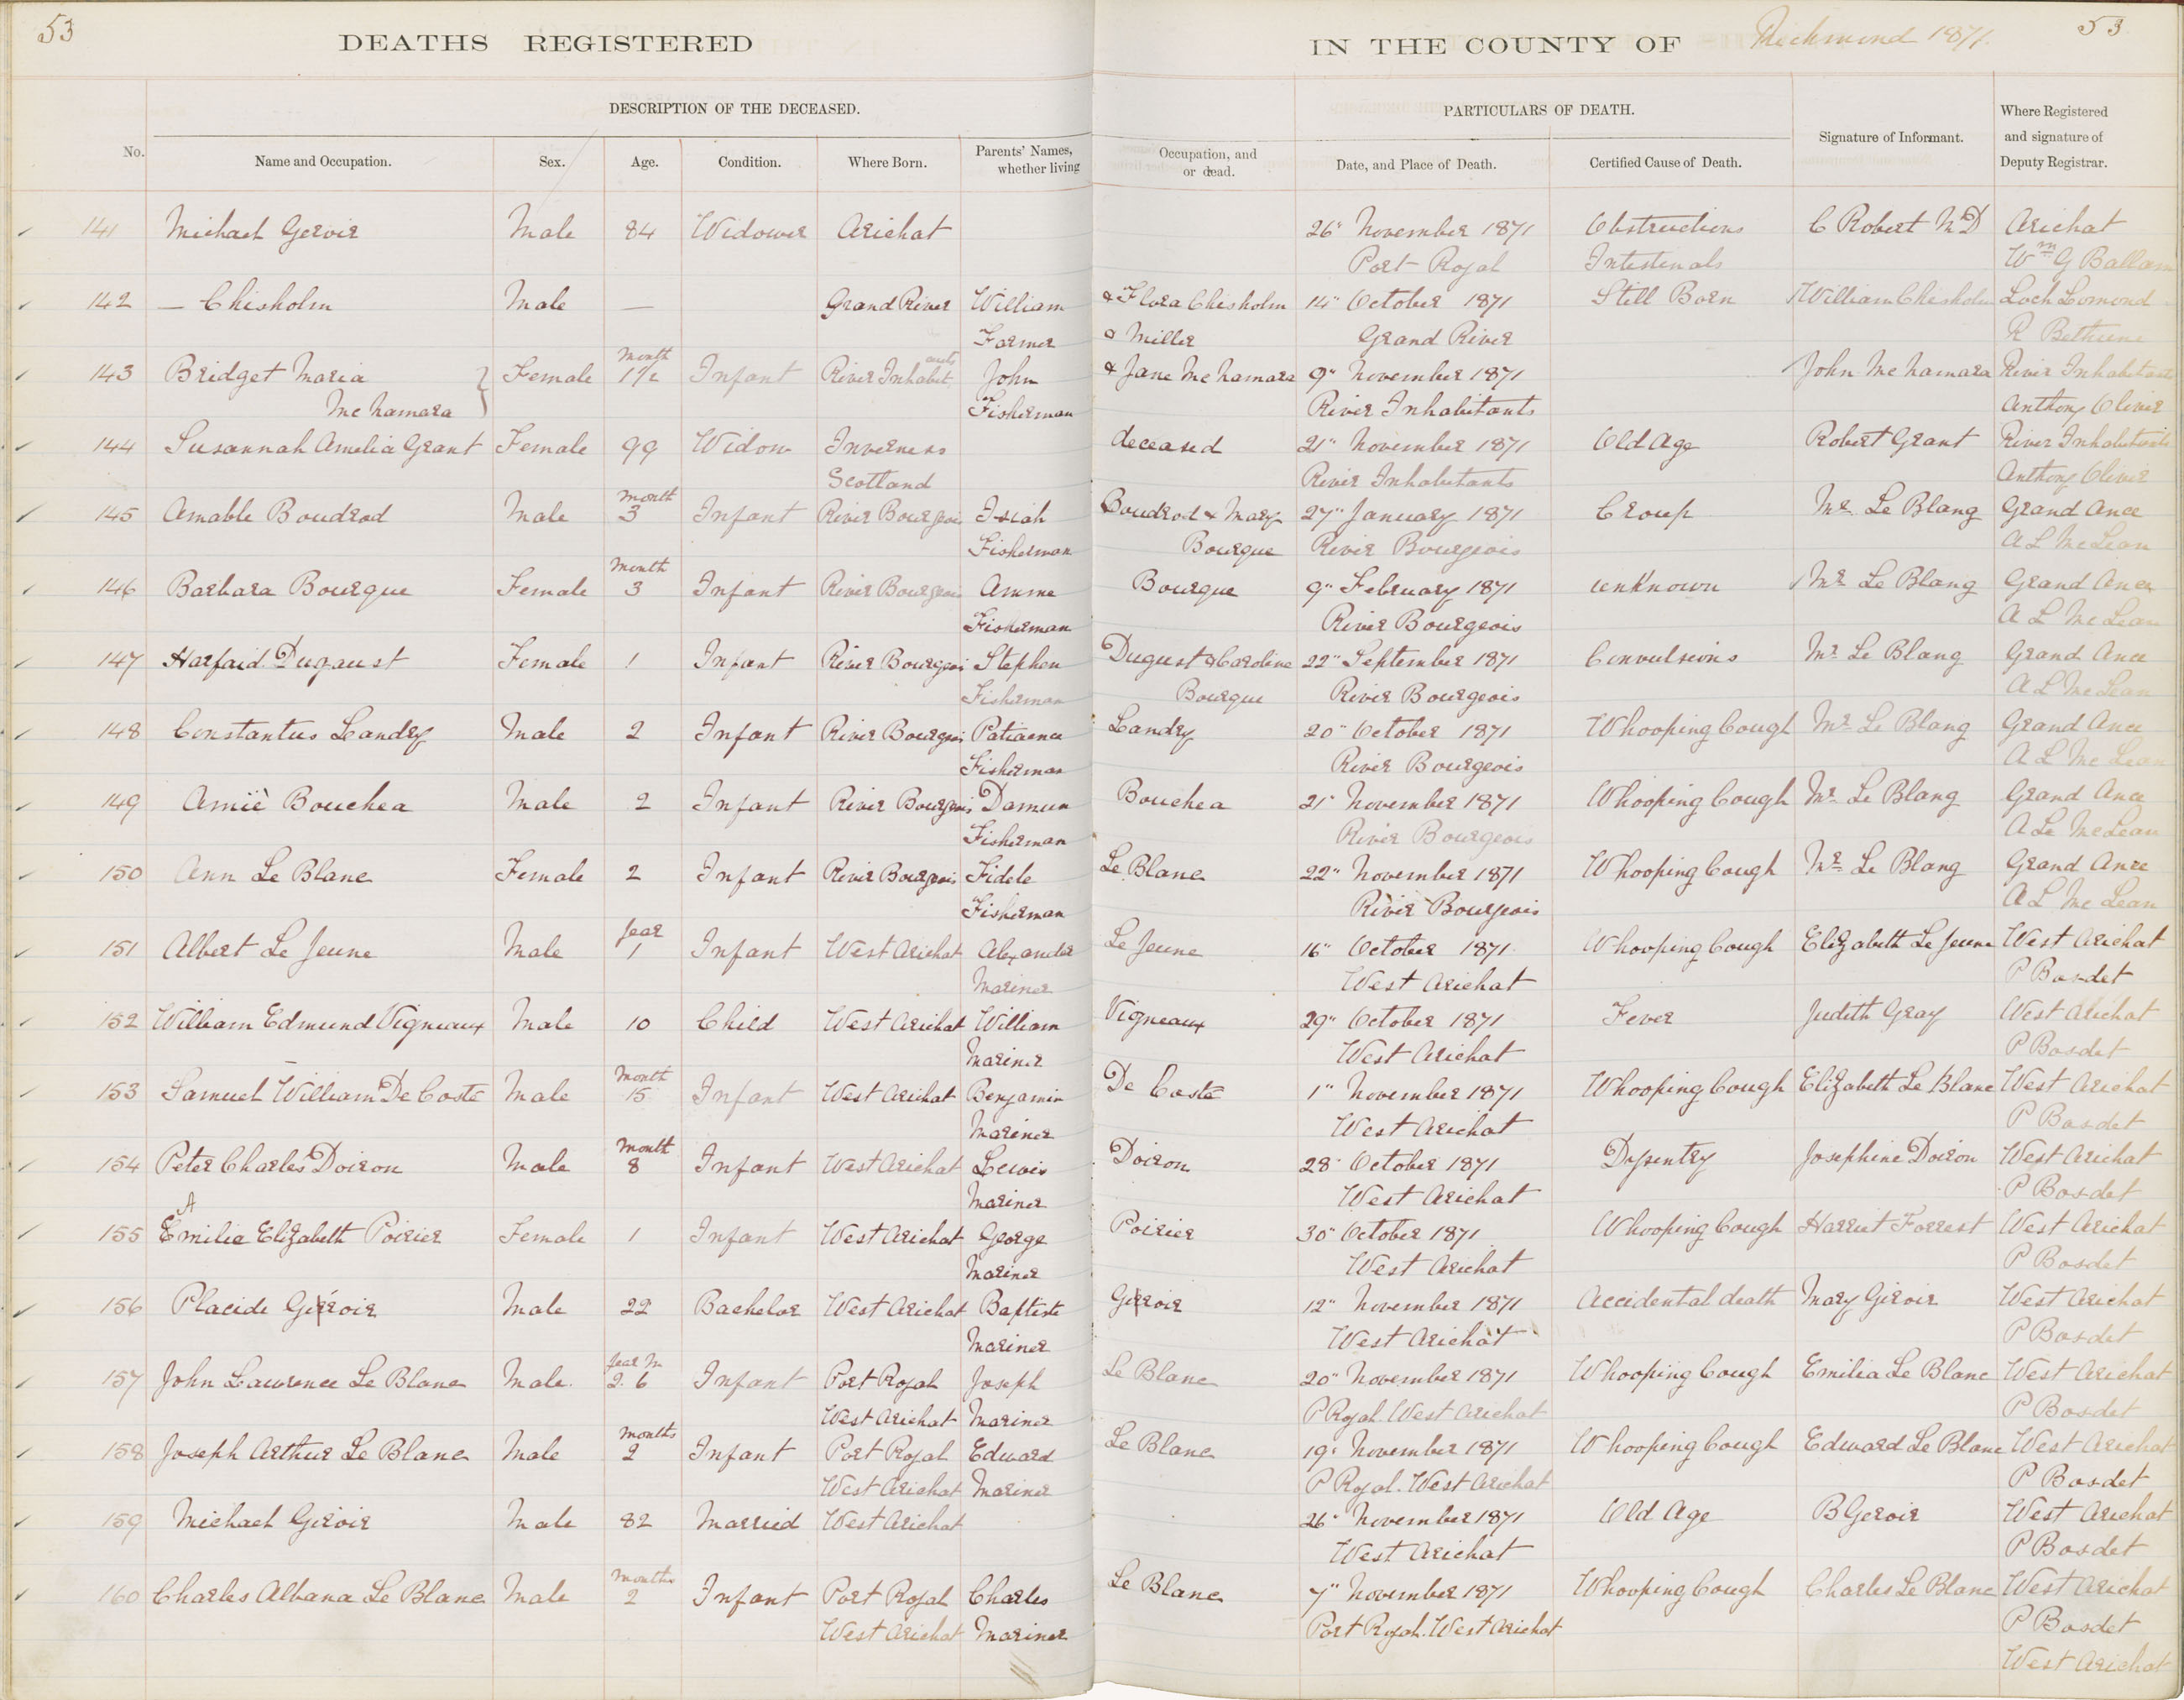 53
DEATHS REGISTERED
IN THE COUNTY OF Richmond 1871.
53
DESCRIPTION OF THE DECEASED.
PARTICULARS OF DEATH.
No. Name and Occupation. Sex. Age. Condition. Where Born. Parents' Names, whether living Occupation, and or dead. Date, and Place of Death. Certified Cause of Death. Signature of Informant. Where Registered and signature of Deputy Registrar.
141 Michael Gervir Male 84 Widower Arichat 26" November 1871 Obstructions C Robert M.D Arichat
Port Royal Intestinals Wm G Ballam
142 — Chisholm Male — Grand River William & Flora Chisholm 14" October 1871 Still Born William Chisholm Loch Lomond
Farmer & Miller Grand River R Bethune
143 Bridget Maria Female Month 1 1/2 Infant River Inhabitants John & Jane McNamara 9" November 1871 John McNamara River Inhabitants
McNamara Fisherman River Inhabitants Anthony Oliver
144 Susannah Amelia Grant Female 99 Widow Inverness deceased 21" November 1871 Old Age Robert Grant River Inhabitants
Scotland River Inhabitants Anthony Oliver
145 Amable Boudrod Male Month 3 Infant River Bourgeois Isiah Boudrod & Mary 27" January 1871 Croup Mr. Le Blang Grand Ance
Fisherman Bourque River Bourgeois A L McLean
146 Barbara Bourque Female Month 3 Infant River Bourgeois Amme Bourque 9" February 1871 unknown Mr. Le Blang Grand Ance
Fisherman River Bourgeois A L McLean
147 Harfaid Dugaust Female 1 Infant River Bourgeois Stephen Dugust & Caroline 22" September 1871 Convulsions Mr. Le Blang Grand Ance
Fisherman Bourque River Bourgeois A L McLean
148 Constantus Landry Male 2 Infant River Bourgeois Patiaence Landry 20" October 1871 Whooping Cough Mr. Le Blang Grand Ance
Fisherman River Bourgeois A L McLean
149 Amiè Bouchea Male 2 Infant River Bourgeois Damun Bouchea 21" November 1871 Whooping Cough Mr. Le Blang Grand Ance
Fisherman River Bourgeois A Le McLean
150 Ann Le Blanc Female 2 Infant River Bourgeois Fidele Le Blanc 22" November 1871 Whooping Cough Mr. Le Blang Grand Ance
Fisherman River Bourgeois A L McLean
151 Albert Le Jeune Male Year 1 Infant West Arichat Alexander Le Jeune 16" October 1871 Whooping Cough Elizabeth Le Jeune West Arichat
Mariner West Arichat P Bosdet
152 William Edmund Vigneaux Male 10 Child West Arichat William Vigneaux 29" October 1871 Fever Judith Gray West Arichat
Mariner West Arichat P Bosdet
153 Samuel William De Coste Male Month 15 Infant West Arichat Benjamin De Coste 1" November 1871 Whooping Cough Elizabeth Le Blanc West Arichat
Mariner West Arichat P Bosdet
154 Peter Charles Doiron Male Month 8 Infant West Arichat Lewis Doiron 28" October 1871 Dysentry Josephine Doiron West Arichat
Mariner West Arichat P Bosdet
A
155 Emilie Elizabeth Poirier Female 1 Infant West Arichat George Poirier 30" October 1871 Whooping Cough Harriet Forrest West Arichat
Mariner West Arichat P Bosdet
156 Placide Gerroir Male 22 Bachelor West Arichat Baptiste Gerroir 12" November 1871 Accidental death Mary Giroir West Arichat
Mariner West Arichat P Bosdet
157 John Lawrence Le Blanc Male. Year M 2. 6 Infant Port Royal Joseph Le Blanc 20" November 1871 Whooping Cough Emilia Le Blanc West Arichat
West Arichat Mariner P Royal. West Arichat P Bosdet
158 Joseph Arthur Le Blanc Male Months 2 Infant Port Royal Edward Le Blanc 19" November 1871 Whooping Cough Edward Le Blanc West Arichat
West Arichat Mariner P Royal. West Arichat P Bosdet
159 Michael Giroir Male 82 Married West Arichat 26" November 1871 Old Age B Geroir West Arichat
West Arichat P Bosdet
160 Charles Albana Le Blanc Male Months 2 Infant Port Royal Charles Le Blanc 7" November 1871 Whooping Cough Charles Le Blanc West Arichat
West Arichat Mariner Port Royal. West Arichat P Bosdet
West Arichat